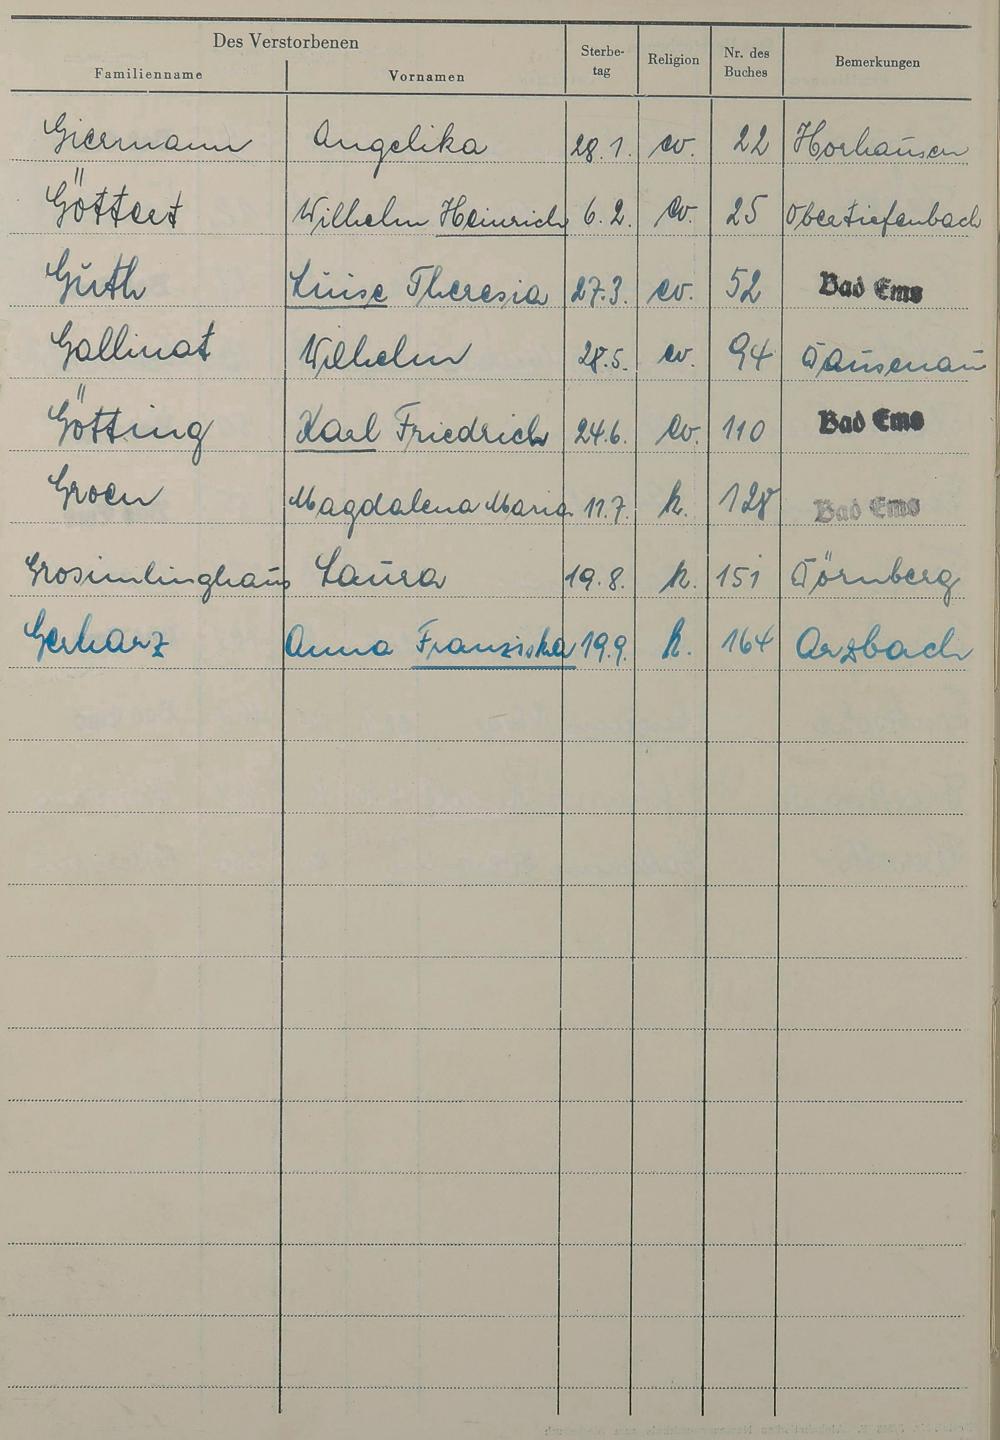 Des Verstorbenen
Familienname Vornamen Sterbe-tag Religion Nr. des Buches Bemerkungen
Giermann Angelika 28.1. ev. 22 Horhausen
Göttert Wilhelm Heinrich 6.2. ev. 25 Obertiefenbach
Guth Luise Theresia 27.3. ev. 52 Bad Ems
Gallinat Wilhelm 28.5. ev. 94 Dausenau
Götting Karl Friedrich 24.6. ev. 110 Bad Ems
Groen Magdalena Maria 11.7. k. 128 Bad Ems
Laura 19.8. k. 151 Dörnberg
Gerharz Anna Franziska 19.9. k. 164 Arzbach